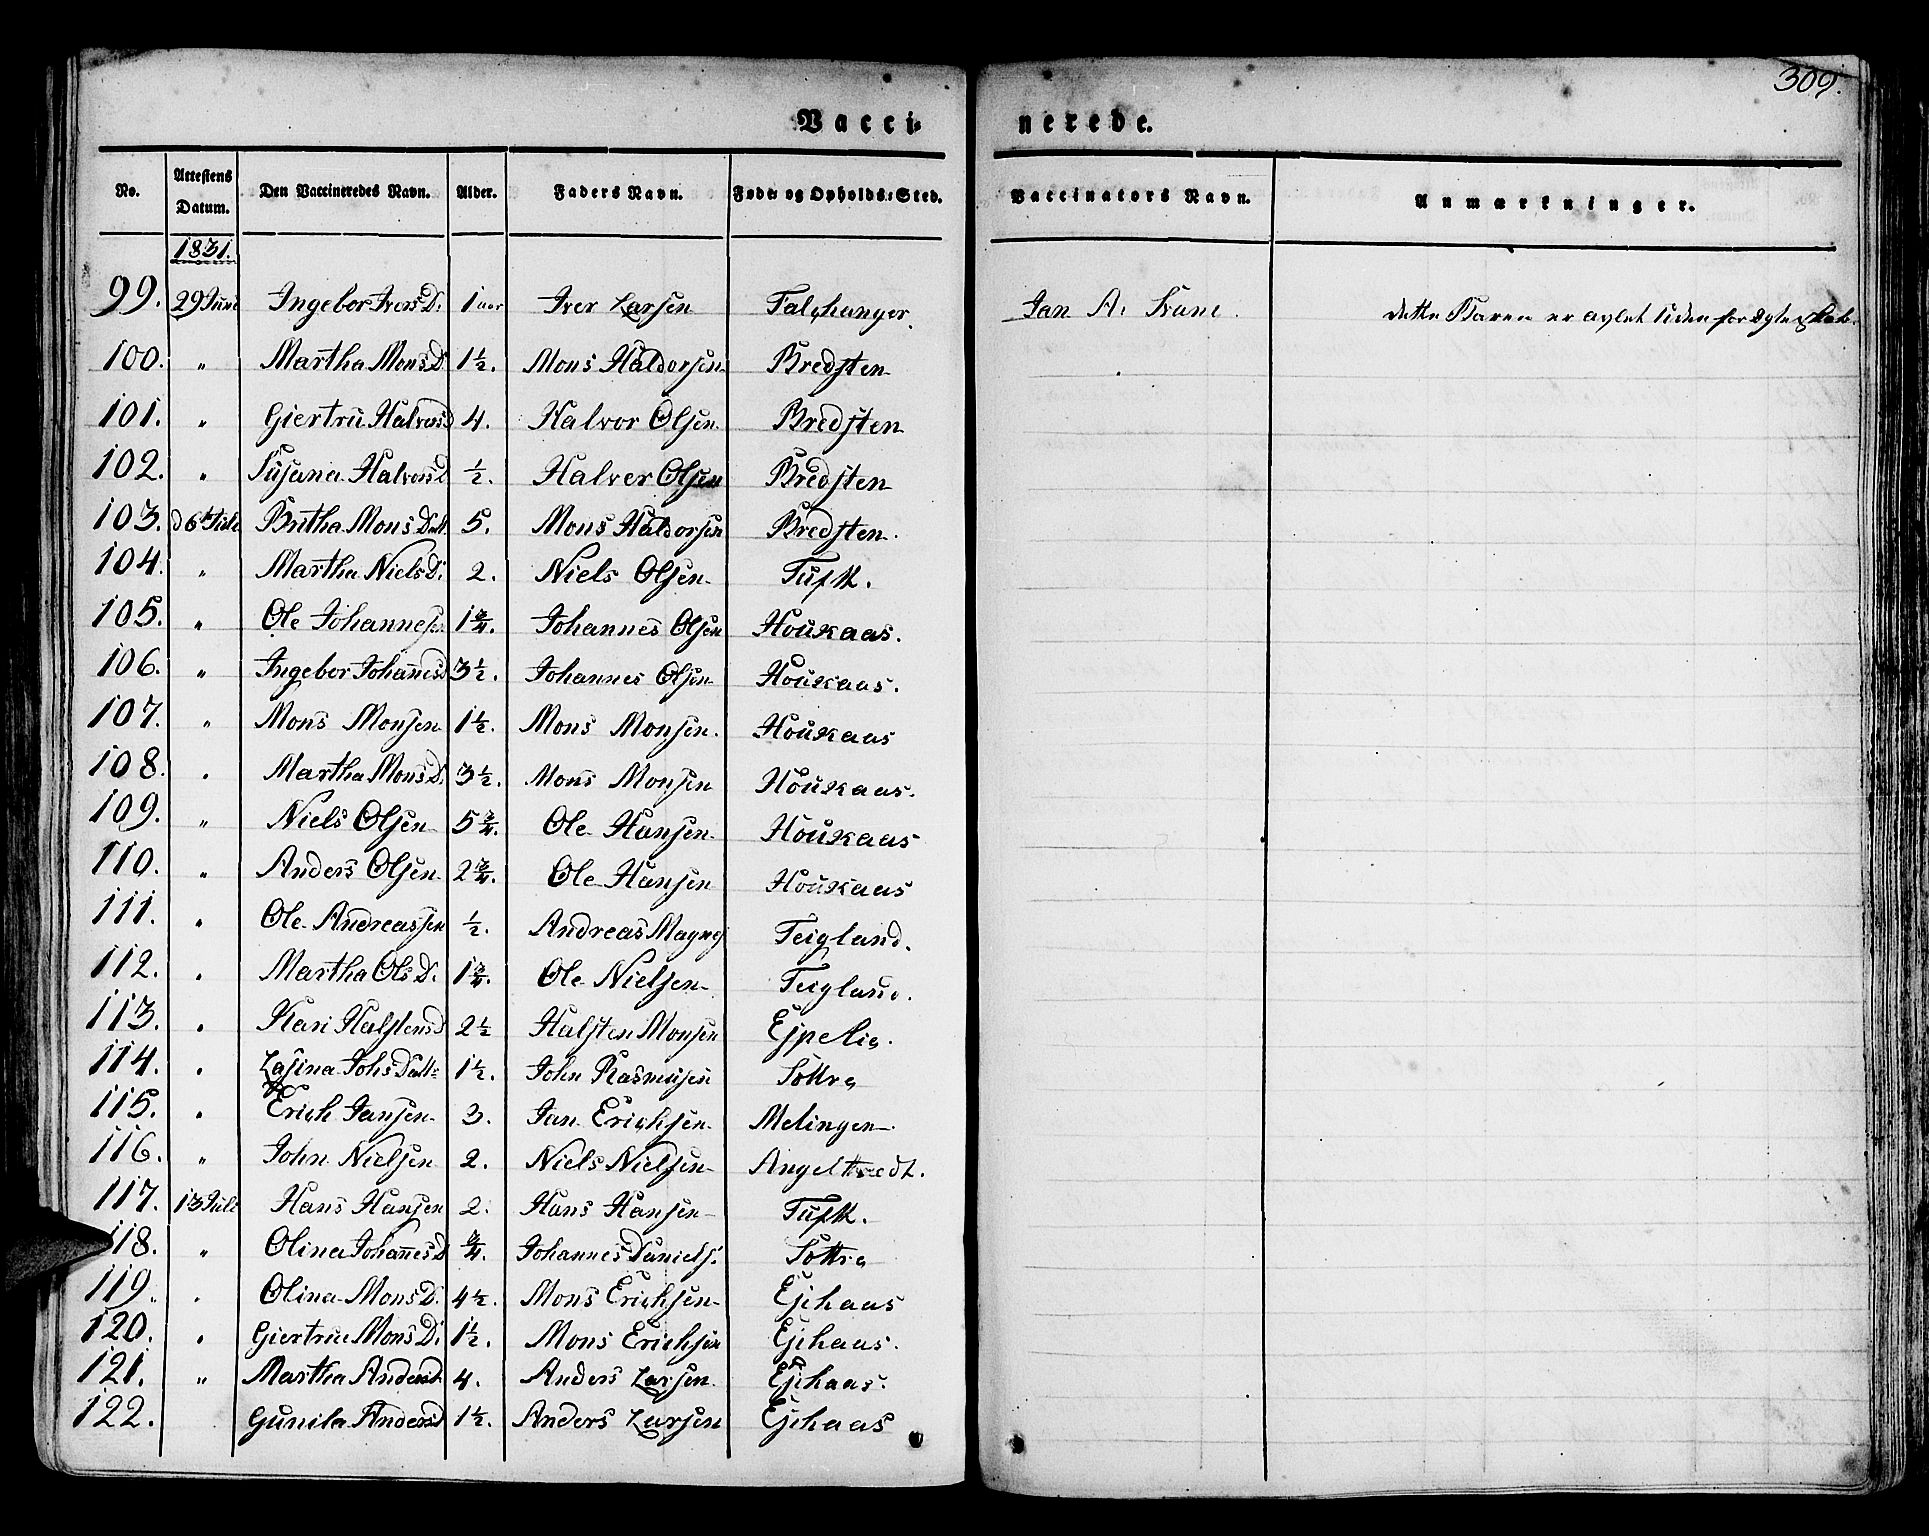 309.
Vacci- nerede.
No. Attestens Datum. Den Vaccineredes Navn. Alder. Faders Navn. Føde og Opholds-Sted. Vaccinators Navn. Anmærkninger.
1831.
99. 29 Juni Ingebor Ivers D. 1 aar Iver Larsen Jan A. dette Baren er avlet uden for Egteskab.
100. " Martha Mons D. 1½. Mons Haldorsen Bredsten
101. " Giertru Halvors D 4. Halvor Olsen Bredsten
102. " Susana Halvors D ½. Halver Olsen Bredsten
103. d 6t Juli Britha Mons Datt. 5. Mons Haldorsen Bredsten.
104. " Martha Niels D. 2. Niels Olsen Tufft.
105. " Ole Johannesen 1¾. Johannes Olsen Houkaas.
106. " Ingebor Johanes D 3½. Johannes Olsen Houkaas.
107. " Mons Monsen 1½. Mons Monsen. Houkaas
108. " Martha Mons D. 3½. Mons Monsen Houkaas.
109. " Niels Olsen 5¾. Ole Hansen Houkaas
110. " Anders Olsen 2¾. Ole Hansen Houkaas
111. " Ole Andreassen ½. Andreas Magnes Teigland.
112. " Martha Ols D. 1¾. Ole Nielsen Teigland.
113. " Kari Halstens D 2½ Halsten Monsen Espelie.
114. " Lasina Johs Datt: 1½. John Rasmusen Sottra
115. " Erich Jansen 3. Jan Erichsen Melingen
116. " John Nielsen 2. Niels Nielsen
117. 13 Juli Hans Hansen 2. Hans Hansen Tufft.
118. " Olina Johanes D ¾. Johannes Daniels. Sottra
119. " Olina Mons D. 4½. Mons Erichsen Ejehaas
120. " Giertru Mons D. 1½. Mons Erichsen Ejehaas.
121. " Martha Anders D 4. Anders Larsen Ejehaas.
122. Gunila Anders D 1½. Anders Larsen Ejehaas